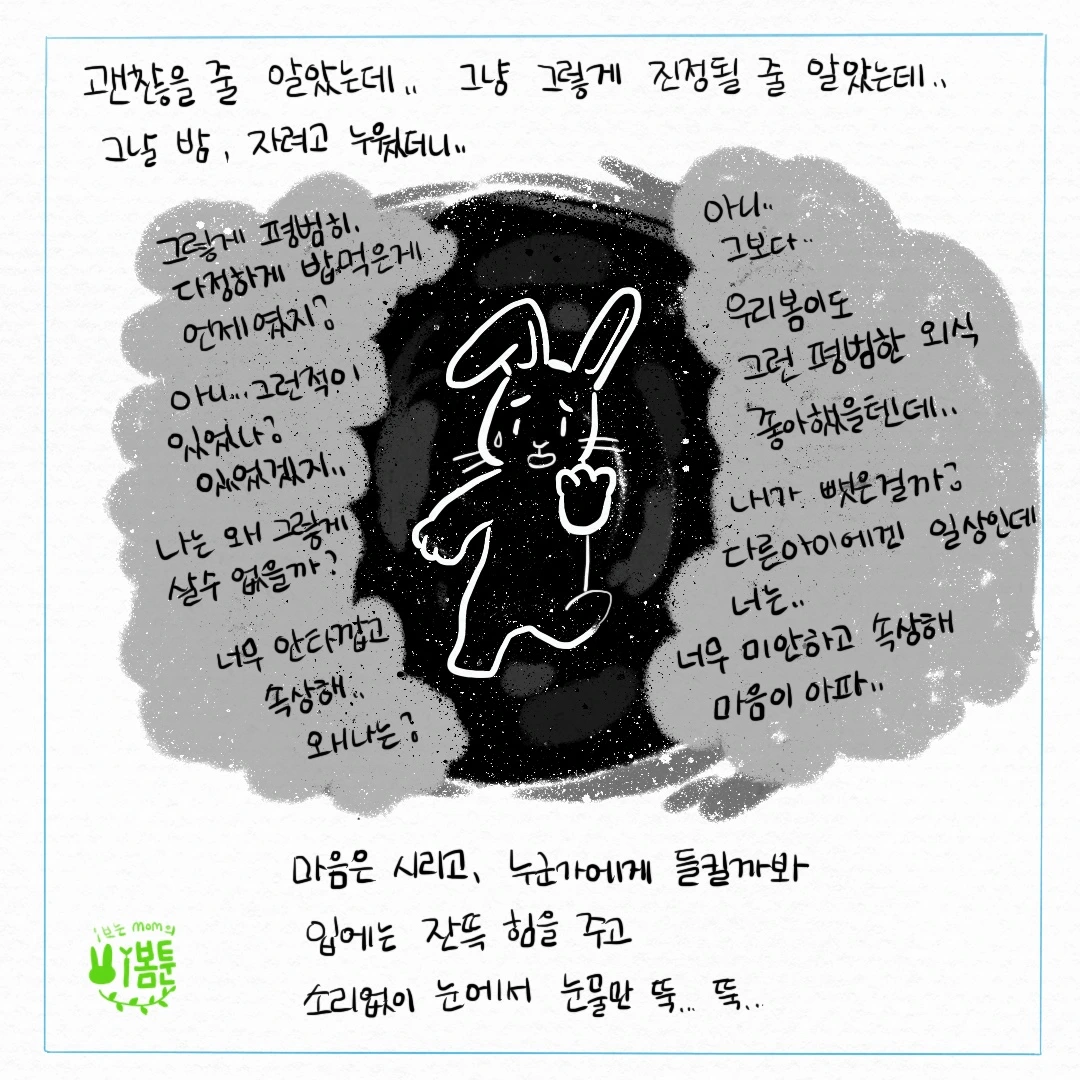 괜찮을 줄 알았는데.. 그냥 그렇게 진정될 줄 알았는데..
그날 밤, 자려고 누웠더니..
그렇게 평범히,
다정하게 밥먹은게
언제였지?
아니... 그런적이
있었나?
있었겠지..
나는 왜 그렇게
살수 없을까?
너무 안타깝고
속상해..
왜나는?
아니..
그보다..
우리봄이도
그런 평범한 외식
좋아했을텐데..
내가 뺏은걸까?
다른아이에겐 일상인데
너는..
너무 미안하고 속상해
마음이 아파..
마음은 시리고, 누군가에게 들킬까봐
입에는 잔뜩 힘을 주고
소리없이 눈에서 눈물만 뚝... 뚝...
i보는 mom의
i봄툰